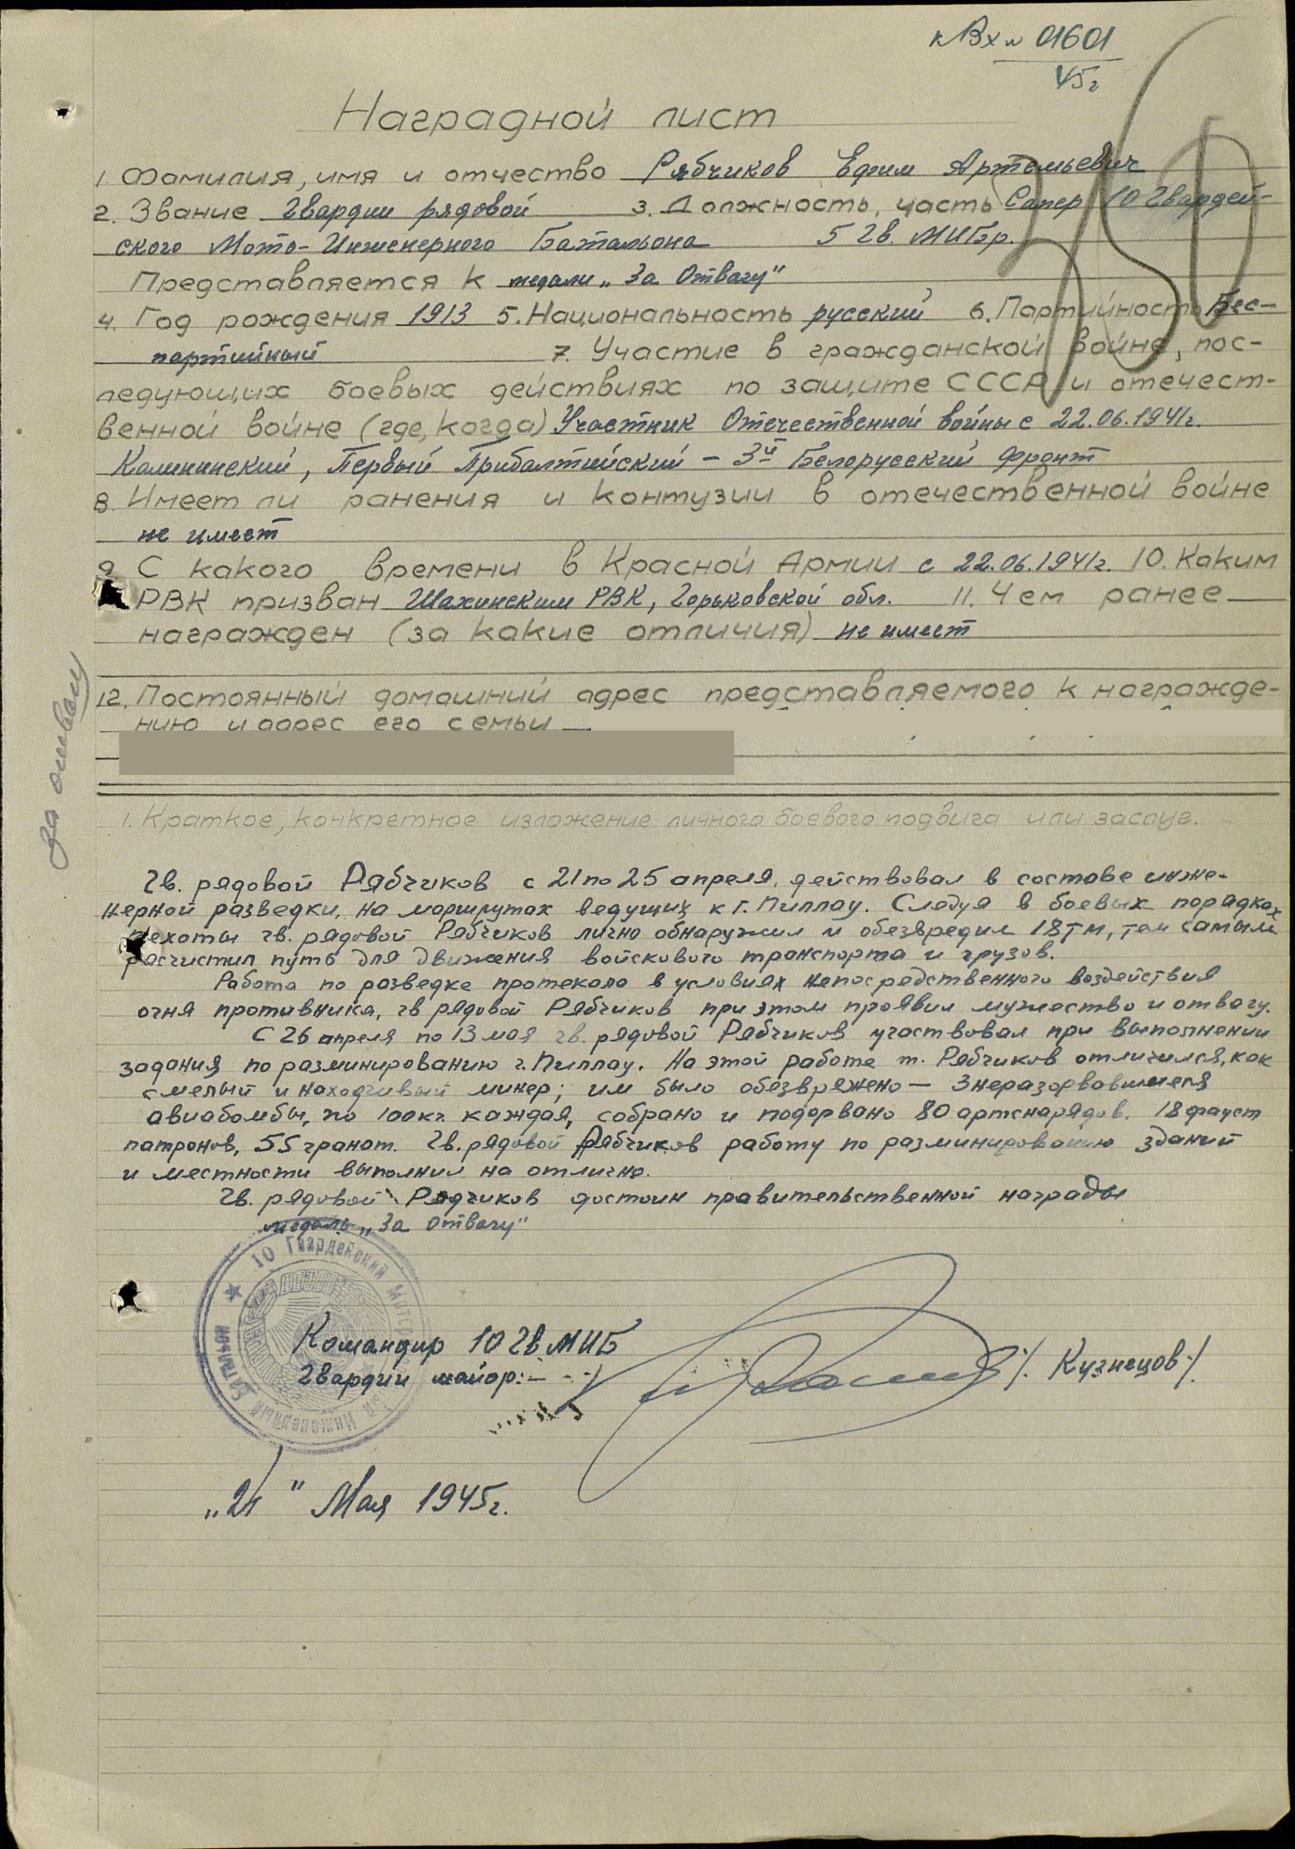 к Вх № 01601
45г
350
Наградной лист
1. Фамилия, имя и отчество Рябчиков Ефим Артемьевич
2. Звание Гвардии рядовой 3. Должность, часть Сапер 10 Гвардей-
ского Мото-Инженерного Батальона 5 Гв. МИБр.
Представляется к медали „За Отвагу"
4. Год рождения 1913 5. Национальность русский 6. Партийность Бес-
партийный 7. Участие в гражданской войне, пос-
ледующих боевых действиях по защите СССР и отечест-
венной войне (где, когда) Участник Отечественной войны с 22.06.1941г.
Калининский, Первый Прибалтийский – 3й Белорусский фронт
8. Имеет ли ранения и контузии в отечественной войне
не имеет
9. С какого времени в Красной Армии с 22.06.1941г. 10. Каким
РВК призван Шахинским РВК, Горьковской обл. 11. Чем ранее
награжден (за какие отличия) не имеет
12. Постоянный домашний адрес представляемого к награжде-
нию и адрес его семьи
За отвагу
1. Краткое, конкретное изложение личного боевого подвига или заслуг.
Гв. рядовой Рябчиков с 21 по 25 апреля, действовал в составе инже-
нерной разведки, на маршрутах ведущих к г. Пиллау. Следуя в боевых порядках
пехоты гв. рядовой Рябчиков лично обнаружил и обезвредил 18 тм, тем самым
расчистил путь для движения войскового транспорта и грузов.
Работа по разведке протекала в условиях непосредственного воздействия
огня противника, гв рядовой Рябчиков при этом проявил мужество и отвагу.
С 26 апреля по 13 мая гв. рядовой Рябчиков участвовал при выполнении
задания по разминированию г. Пиллау. На этой работе т. Рябчиков отличился, как
смелый и находчивый минер; им было обезврежено – 3 неразорвавшиеся
авиабомбы, по 100 кг. каждая, собрано и подорвано 80 артснарядов, 18 фауст
патронов, 55 гранат. Гв. рядовой Рябчиков работу по разминированию зданий
и местности выполнил на отлично.
Гв. рядовой Рябчиков достоин правительственной награды
медаль „За Отвагу"
10 Гвардейский Мото Инженерный Батальон
Командир 10 Гв МИБ
Гвардии майор: – - ·/ /. Кузнецов ·/.
„21" Мая 1945г.